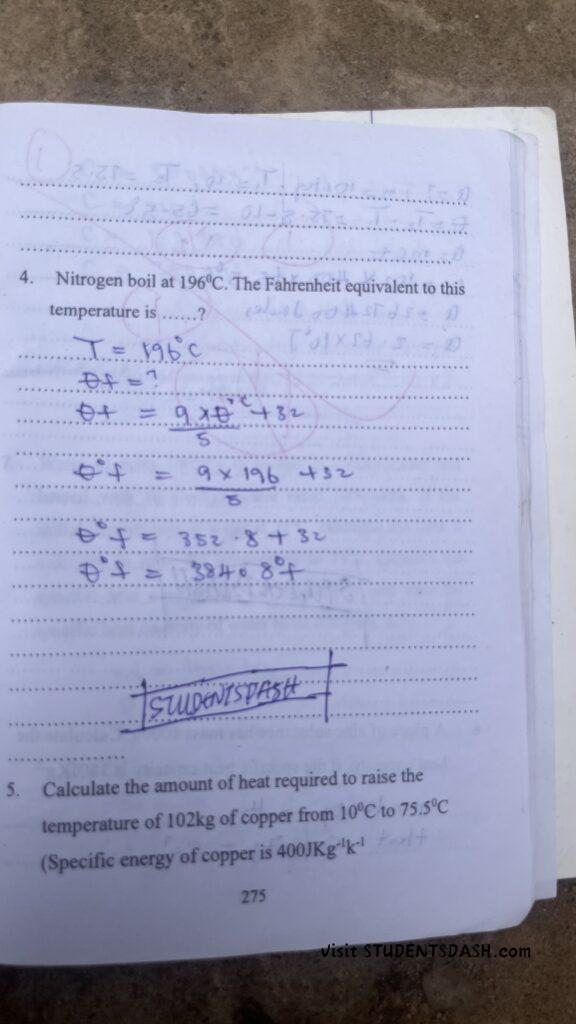 4. Nitrogen boil at 196⁰C. The Fahrenheit equivalent to this
temperature is ......?
T = 196°C
θf = ?
θf = 9 × θ°c + 32
5
θ°f = 9 × 196 + 32
5
θ°f = 352.8 + 32
θ°f = 384.8°f
STUDENTSDASH
5. Calculate the amount of heat required to raise the
temperature of 102kg of copper from 10⁰C to 75.5⁰C
(Specific energy of copper is 400JKg⁻¹k⁻¹
275
Visit STUDENTSDASH.com